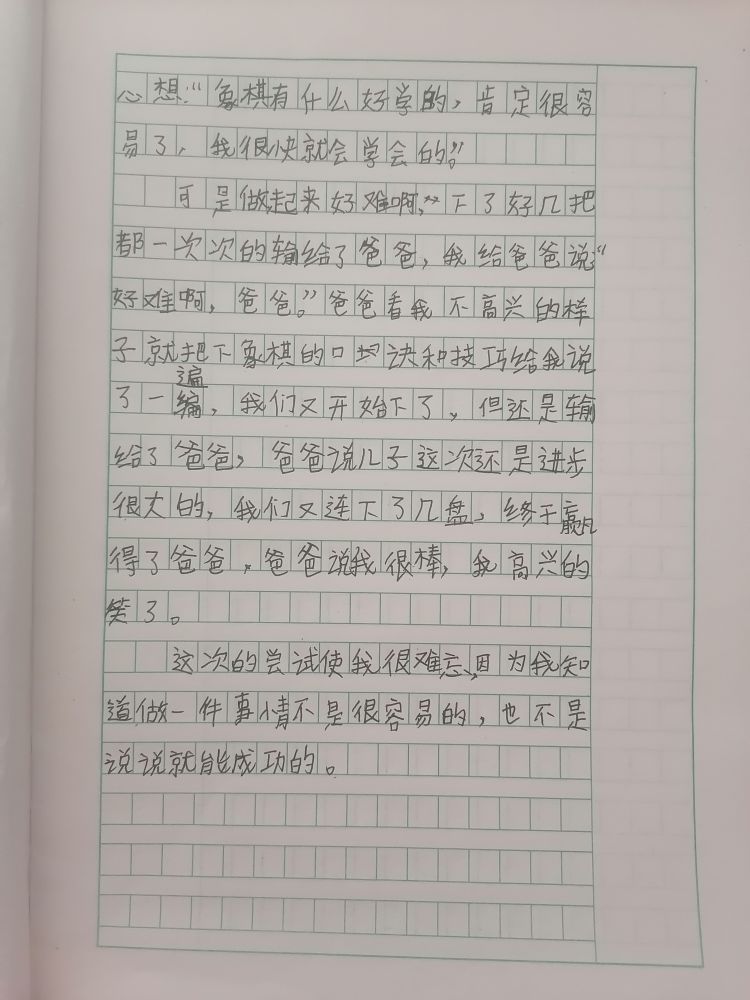 心想:“象棋有什么好学的,肯定很容
易了,我很快就会学会的。”
可是做起来好难啊,下了好几把
都一次次的输给了爸爸,我给爸爸说:“
好难啊,爸爸。”爸爸看我不高兴的样
子就把下象棋的口诀和技巧给我说
遍
了一编,我们又开始下了,但还是输
给了爸爸,爸爸说儿子这次还是进步
很大的,我们又连下了几盘,终于赢
得了爸爸,爸爸说我很棒,我高兴的
笑了。
这次的尝试使我很难忘,因为我知
道做一件事情不是很容易的,也不是
说说就能成功的。